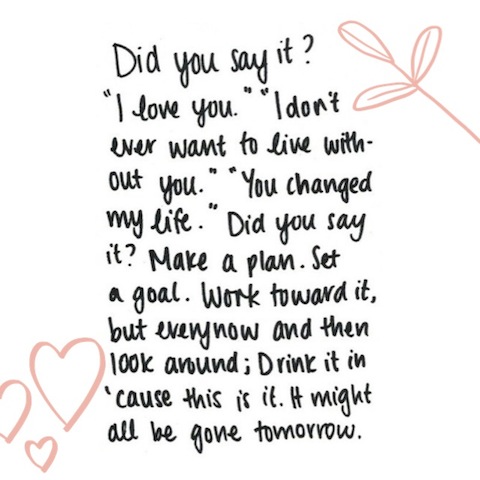 Did you say it?
"I love you." "I don't
ever want to live with-
out you." "You changed
my life." Did you say
it? Make a plan. Set
a goal. Work toward it,
but every now and then
look around; Drink it in
'cause this is it. It might
all be gone tomorrow.